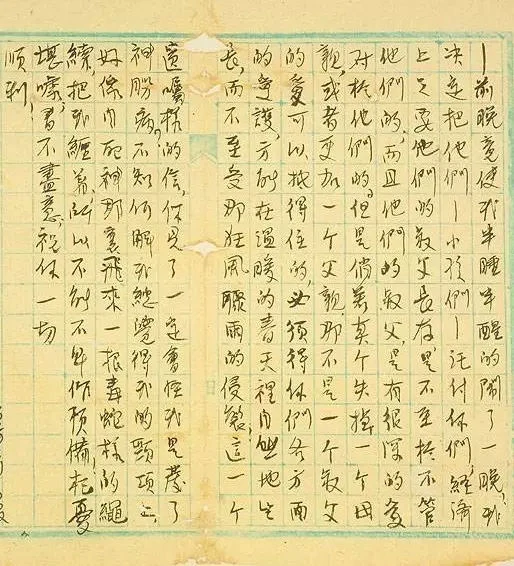 —前晚竟使我半睡半醒的鬧了一晚，我
决定把他們—小孩們—託付你們，經濟
上只要他們的叔父長存，是不至於不管
他們的，而且他們的叔父，是有很深的愛
对於他們的。但是倘若真个失掉一个母
親，或者更加一个父親，那不是一个叔父
的愛可以抵得住的，必須得你們各方面
的愛護，方能在溫暖的春天裡自然地生
長，而不至受那狂風驟雨的侵襲！這一个
遺囑樣的信，你見了一定會怪我是發了
神經病？不知何解，我總覺得我的頸項上，
好像自死神那裏飛來一根毒蛇樣的繩
索，把我纏着，所以不能不早作預備！杞憂
堪嚎，書不盡意，祝你一切
順利！